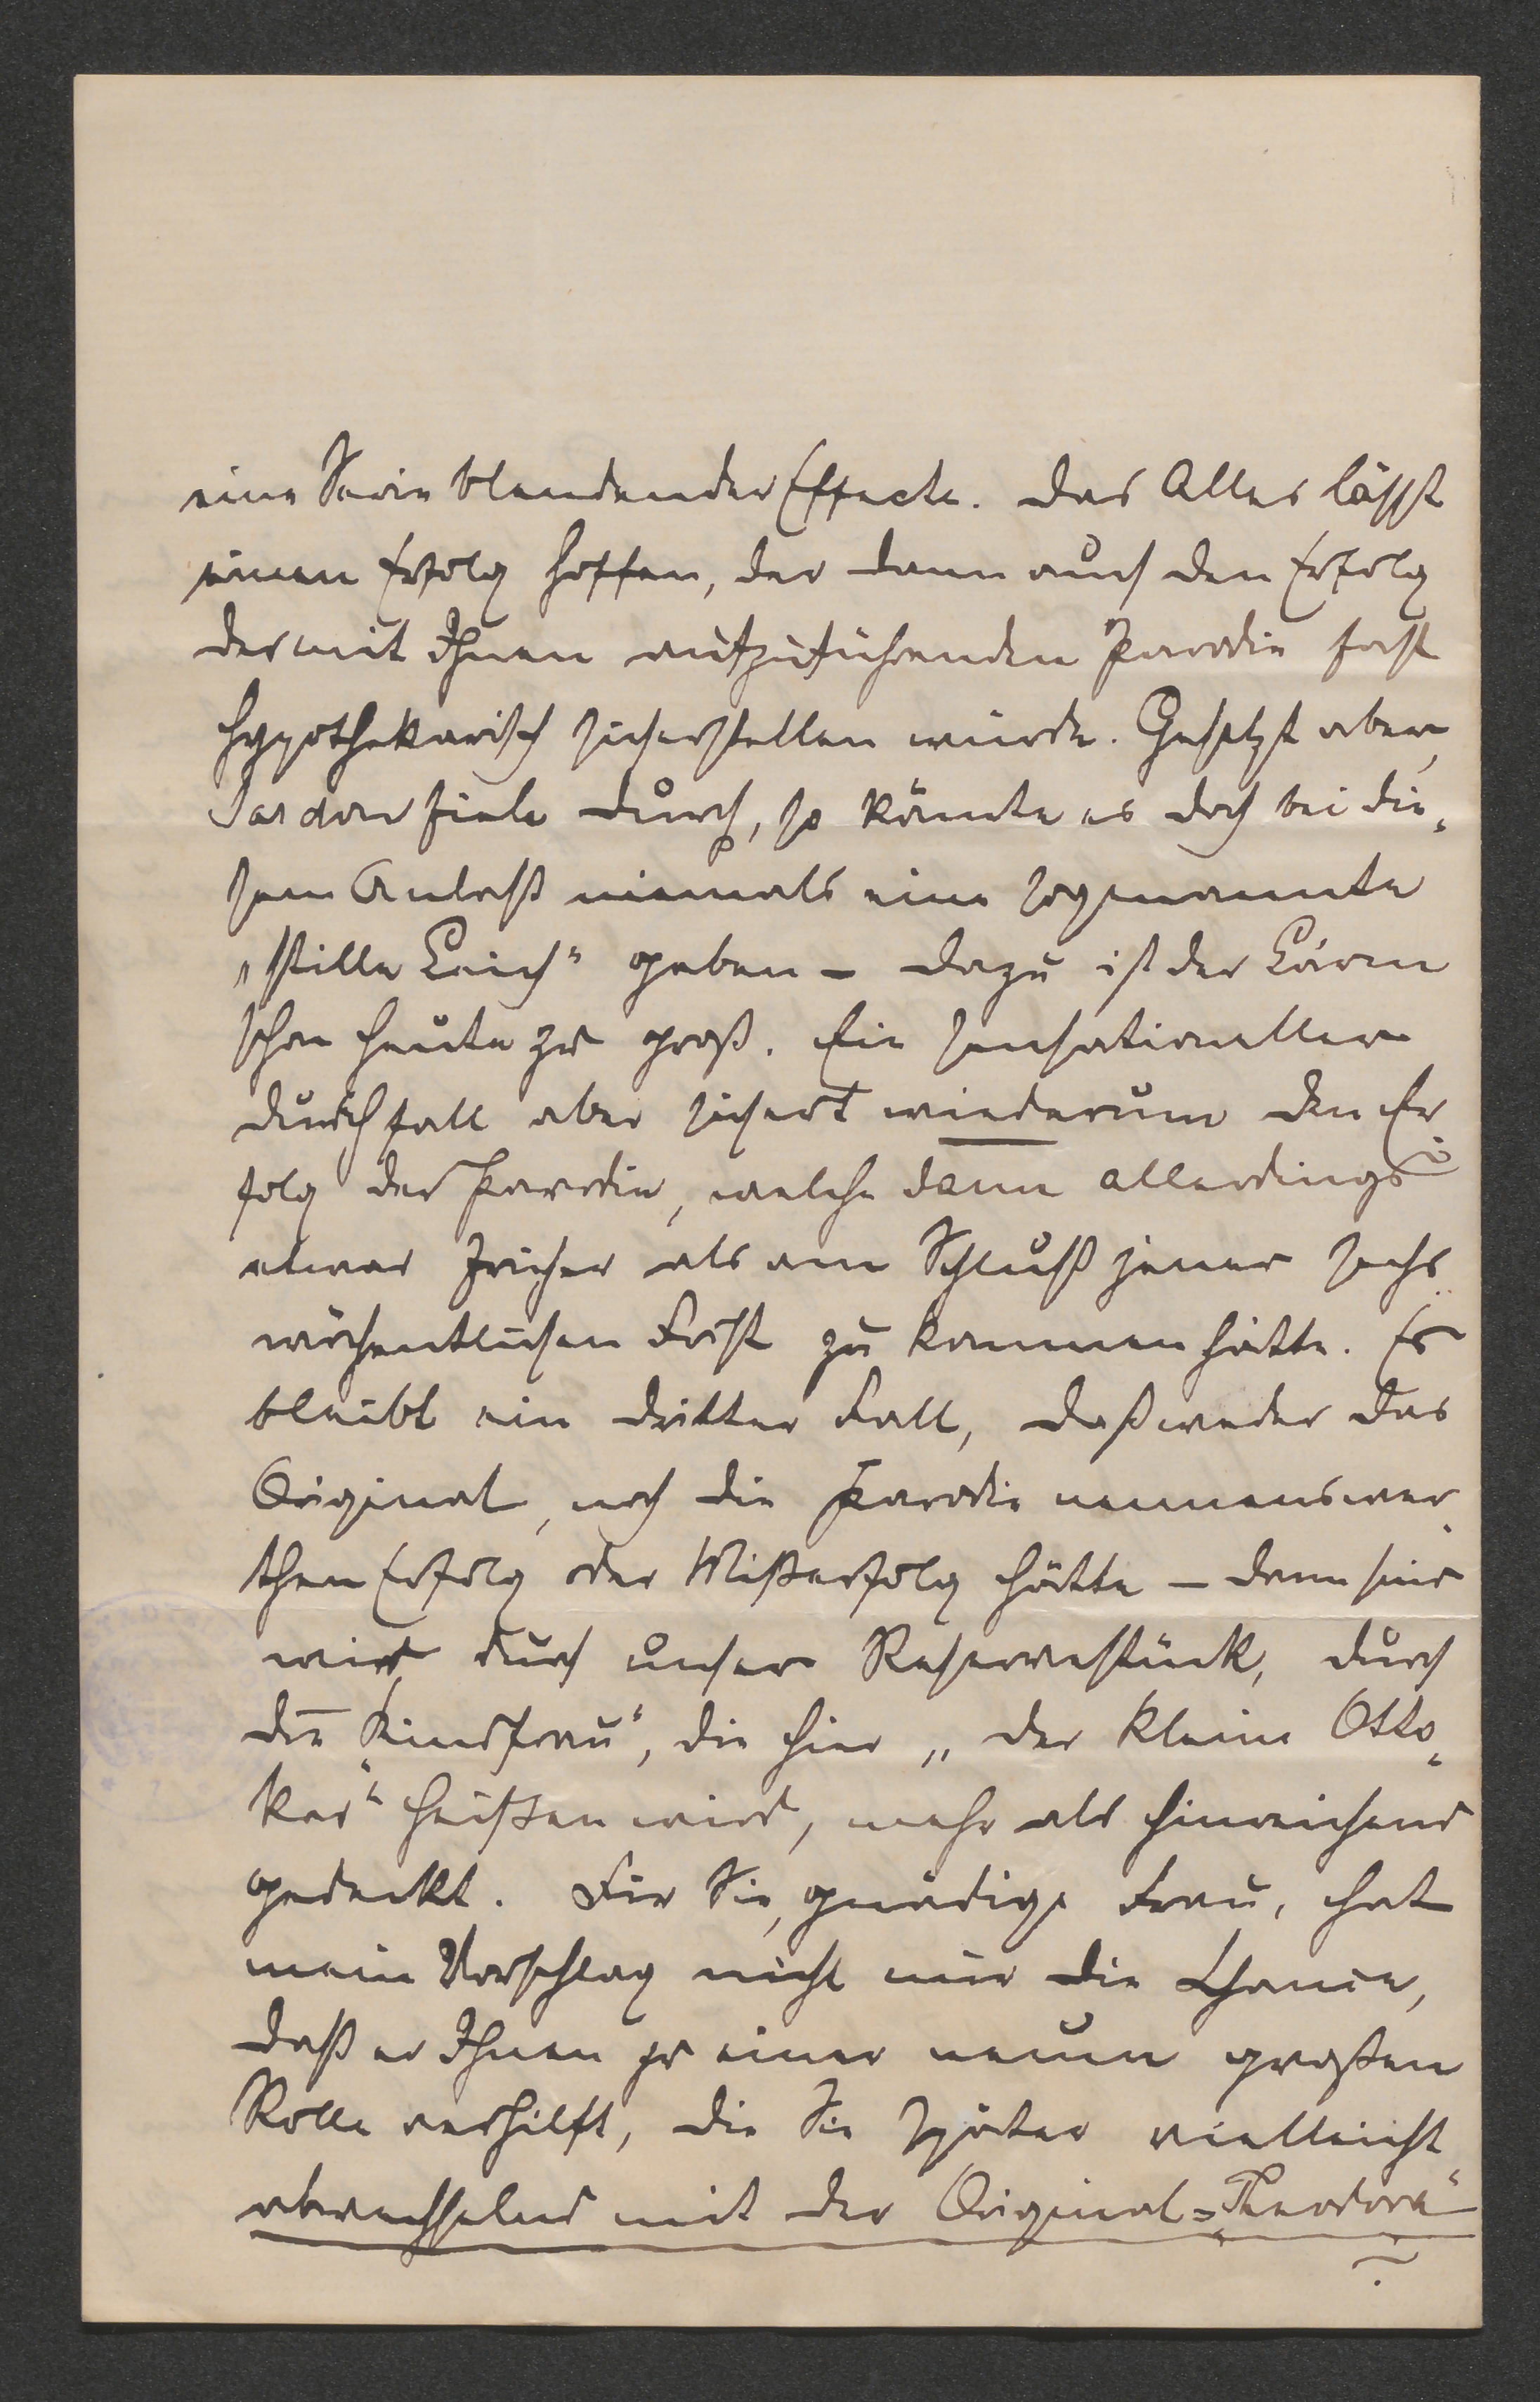 eine Serie blendender Effecte. Das Alles läßt
einen Erfolg hoffen, der dann auch den Erfolg
der mit Ihnen aufzuführenden Parodie fast
hypothekarisch sicherstellen würde. Gesetzt aber,
Sardou fiele durch, so könnte es doch bei die„
sem Anlaß niemals eine sogenannte
„stille Leich“ geben – dazu ist der Lärm
schon heute zu groß. Ein sensationeller
Durchfall aber sichert wiederum den Er„
folg der Parodie, welche dann allerdings
etwas früher als am Schluß jener sechs„
wöchentlichen Frist zu kommen hätte. Es
bleibt ein dritter Fall, daß weder das
Original, noch die Parodie nennenswer„
then Erfolg oder Mißerfolg hätte – dann sind
wir durch unser Reservestück, durch
die „Kindsfrau“, die hier „der kleine Otto„
kar“ heißen wird, mehr als hinreichend
gedeckt. Für Sie, gnädige Frau, hat
mein Vorschlag nicht nur die Chance,
daß er Ihnen zu einer neuen großen
Rolle verhilft, die Sie später vielleicht
abwechselnd mit der Original=„Theodora“